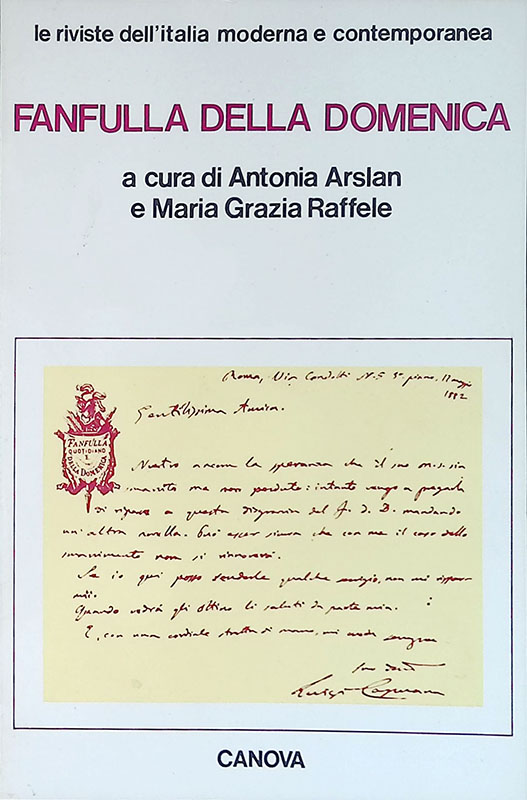 le riviste dell'italia moderna e contemporanea
FANFULLA DELLA DOMENICA
a cura di Antonia Arslan
e Maria Grazia Raffele
Roma, Via Condotti N. 5 3º piano, 1882
Gentilissima Amica.
FANFULLA
QUOTIDIANO
E
DELLA DOMENICA
Nutro ancora la speranza che il suo ms. sia
smarrito ma non perduto: intanto vengo a pregarla
di riparare a questa disgrazia del F. d. D. mandando
un'altra novella. Può esser sicura che con me il caso dello
smarrimento non si rinnoverà.
Se io qui posso renderle qualche servigio, non mi rispar
mii.
Quando vedrà gli Ottino li saluti da parte mia.
E, con una cordiale stretta di mano, mi creda sempre
Suo
Luigi Capuana
CANOVA